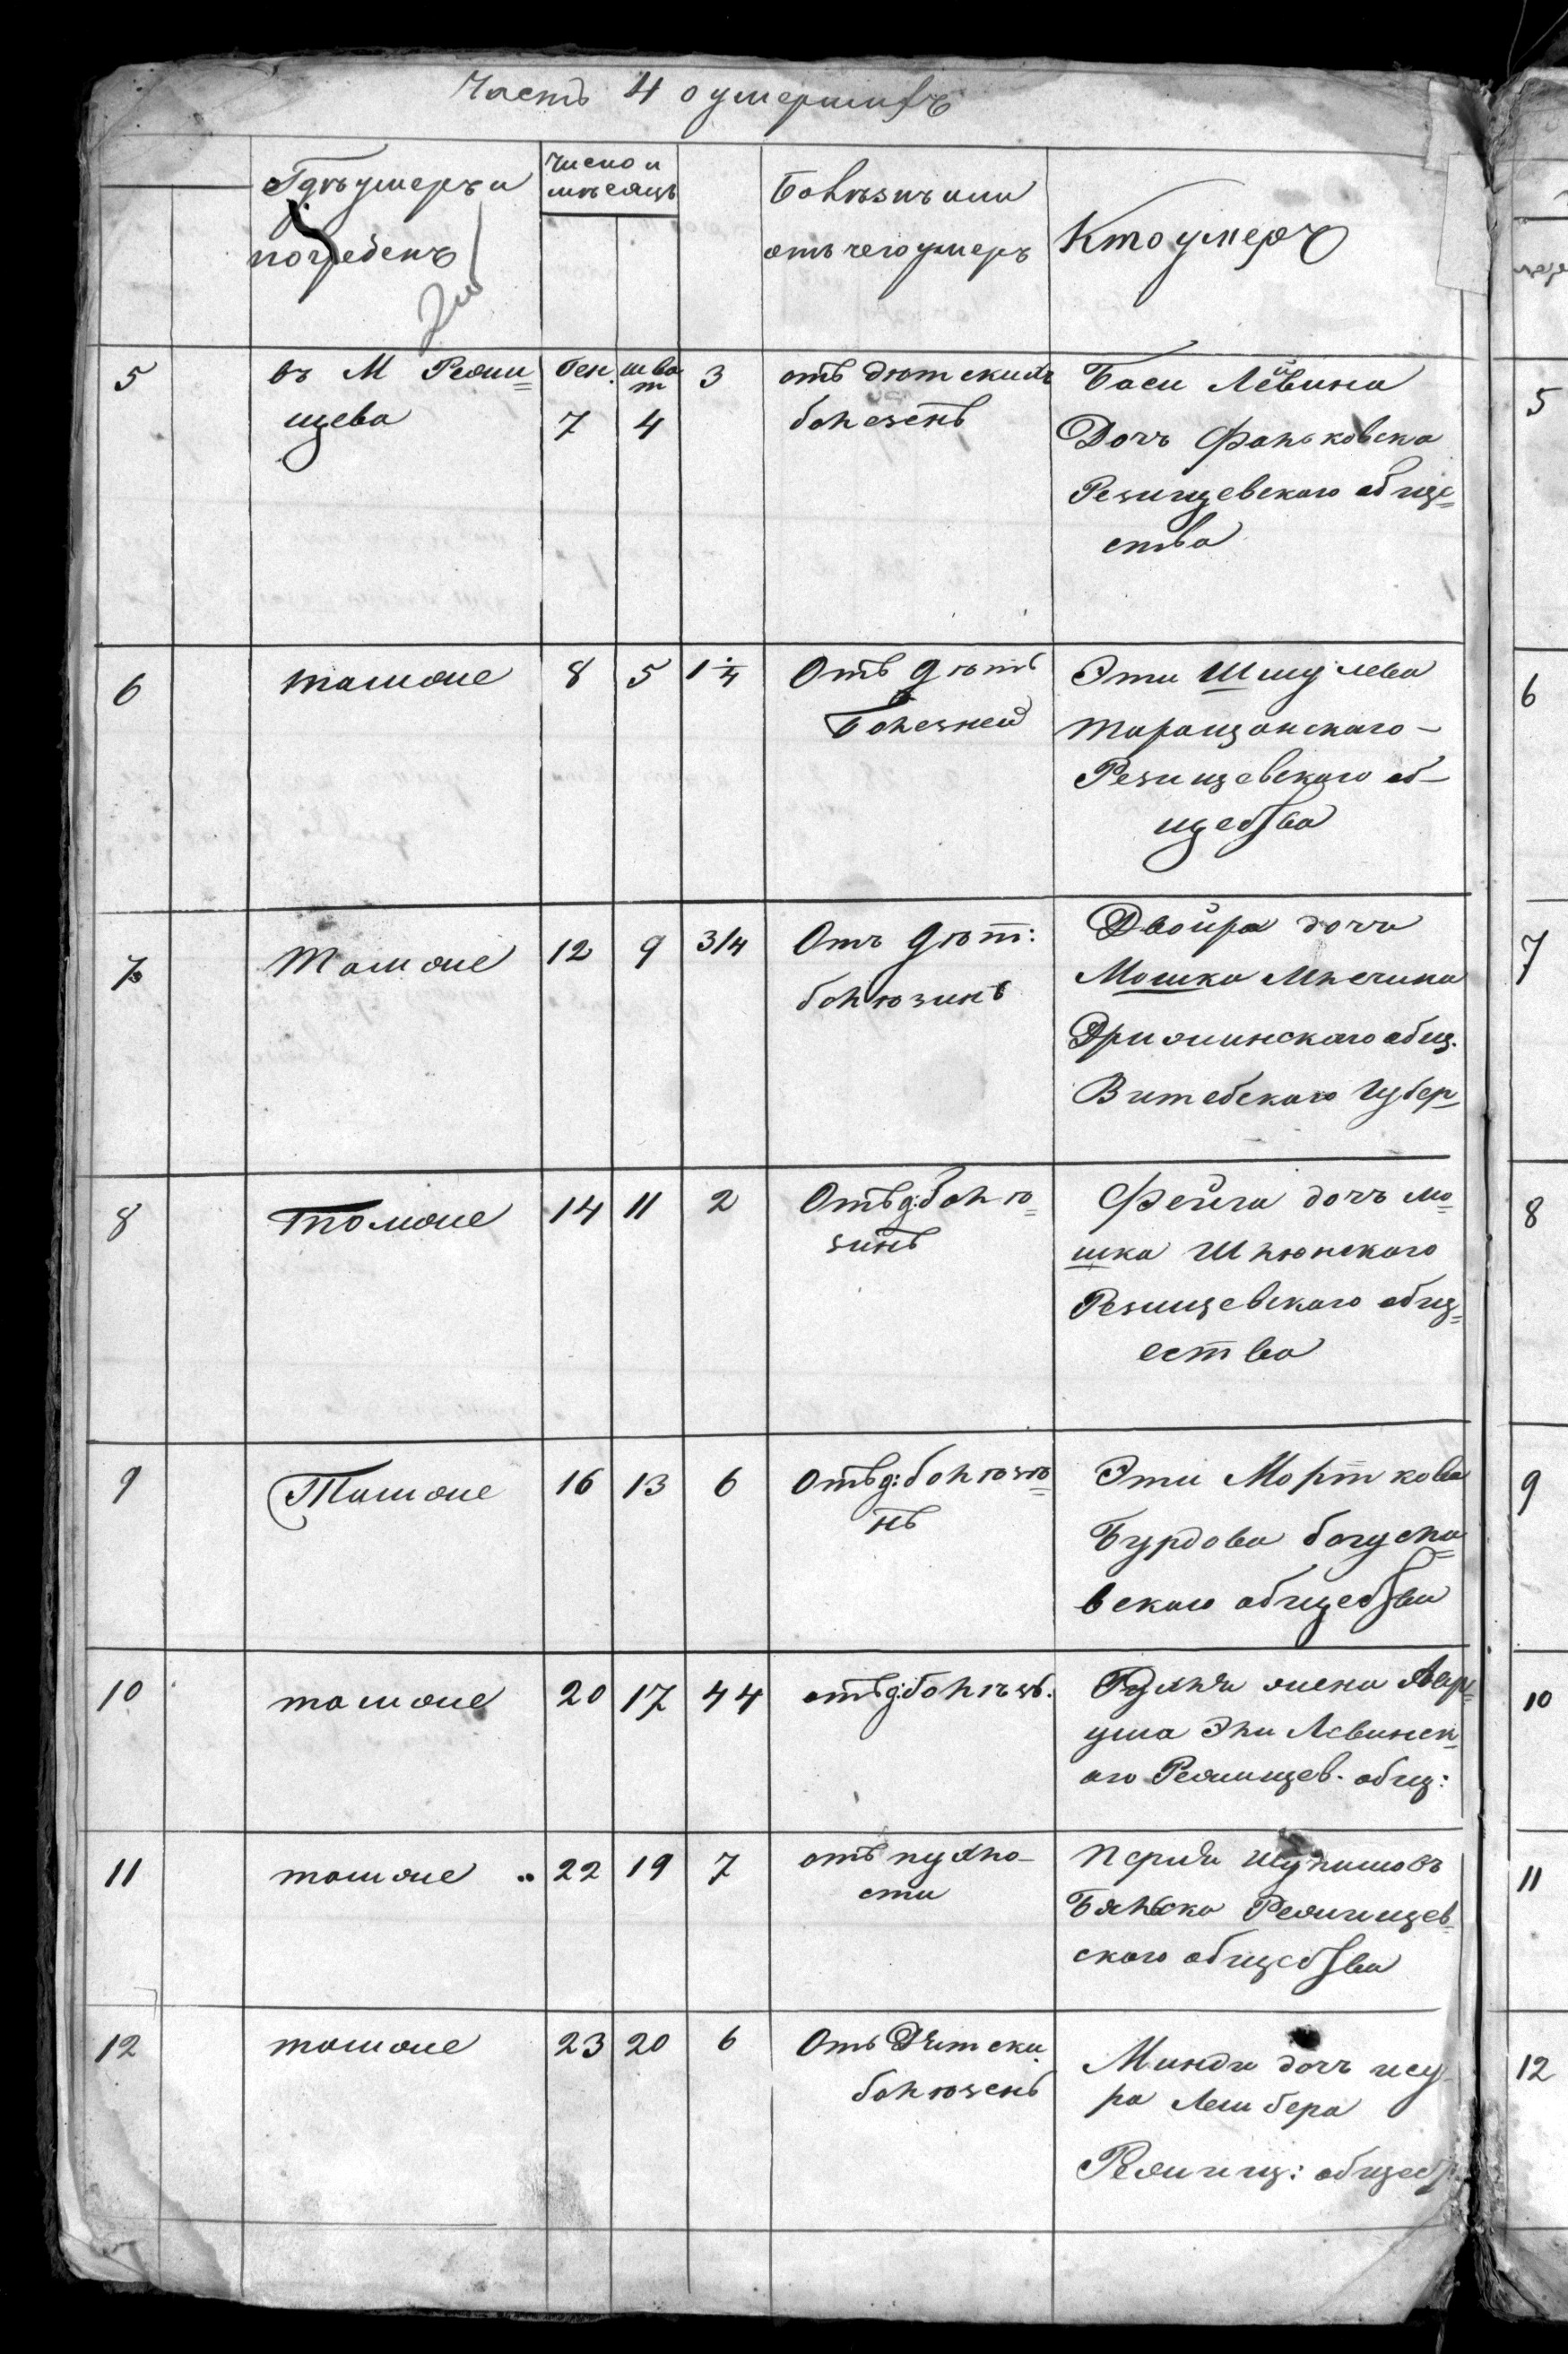 Часть 4 о умершихъ
Гдѣ умеръ и
погребенъ
Число и
мѣсяцъ
Болѣзнъ или
отъ чего умеръ
Кто умеръ
5
въ М Ржи=
щева
Ген. шва
т
7 4
3
отъ дютскихъ
болезенъ
Баси Лейвина
Дочь Фальковска
Резищевскаго обще=
ства
6
тамже
8 5 1 1/4
Отъ дютъ
Болезней
Эти Шмулева
Таращанскаго –
Резищевскаго об–
щества
7
Тамже
12 9 3/4
Отъ дѣт:
болюзинъ
Двойра дочь
Мошка
общ.
Витебскаго Губер
8
Тамже
14 11 2
Отъ д: болю=
зинъ
Фейга дочъ Мо=
шка Шлюнскаго
Резищевскаго общ=
ества
9
Тамже
16 13 6
Отъ д: болюзю=
нъ
Эти Морткова
Бурдова богусла=
вскаго общества
10
тамже
20 17 44
отъ д: болѣзъ.
жена Авр=
ума Эли Левинск=
аго Режищев. общ:
11
тамже
22 19 7
отъ пухло–
сти
Бяльско Режищев=
скаго общества
12
тамже
23 20 6
Отъ Дѣтски.
болюзенъ
Минди дочъ ису–
ра Лембера
Режищ: общест:
5
6
7
8
9
10
11
12